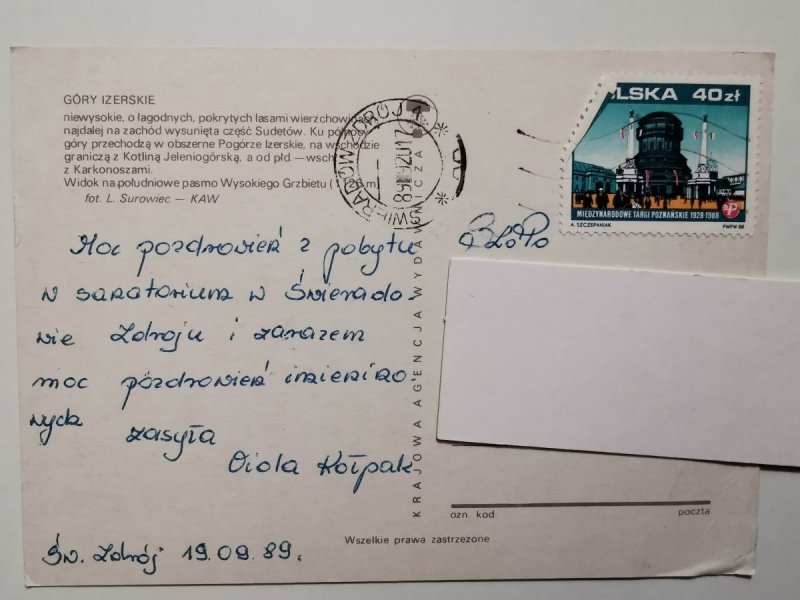 GÓRY IZERSKIE
niewysokie, o łagodnych, pokrytych lasami wierzchowinach
najdalej na zachód wysunięta część Sudetów. Ku północy
góry przechodzą w obszerne Pogórze Izerskie, na wschodzie
graniczą z Kotliną Jeleniogórską, a od płd. — wsch
z Karkonoszami.
Widok na południowe pasmo Wysokiego Grzbietu
fot. L. Surowiec — KAW
Moc pozdrowień z pobytu
w sanatorium w Świerado-
wie Zdroju i zarazem
moc pozdrowień imieniko-
wych zasyła
Viola Kołpak
Św. Zdrój 19.09.89.
KRAJOWA AGENCJA WYDAWNICZA
ŚWIERADÓW ZDRÓJ 1
POLSKA 40zł
MIĘDZYNARODOWE TARGI POZNAŃSKIE 1928-1988
A. SZCZEPANIAK PWPW 88
ozn kod. poczta
Wszelkie prawa zastrzeżone